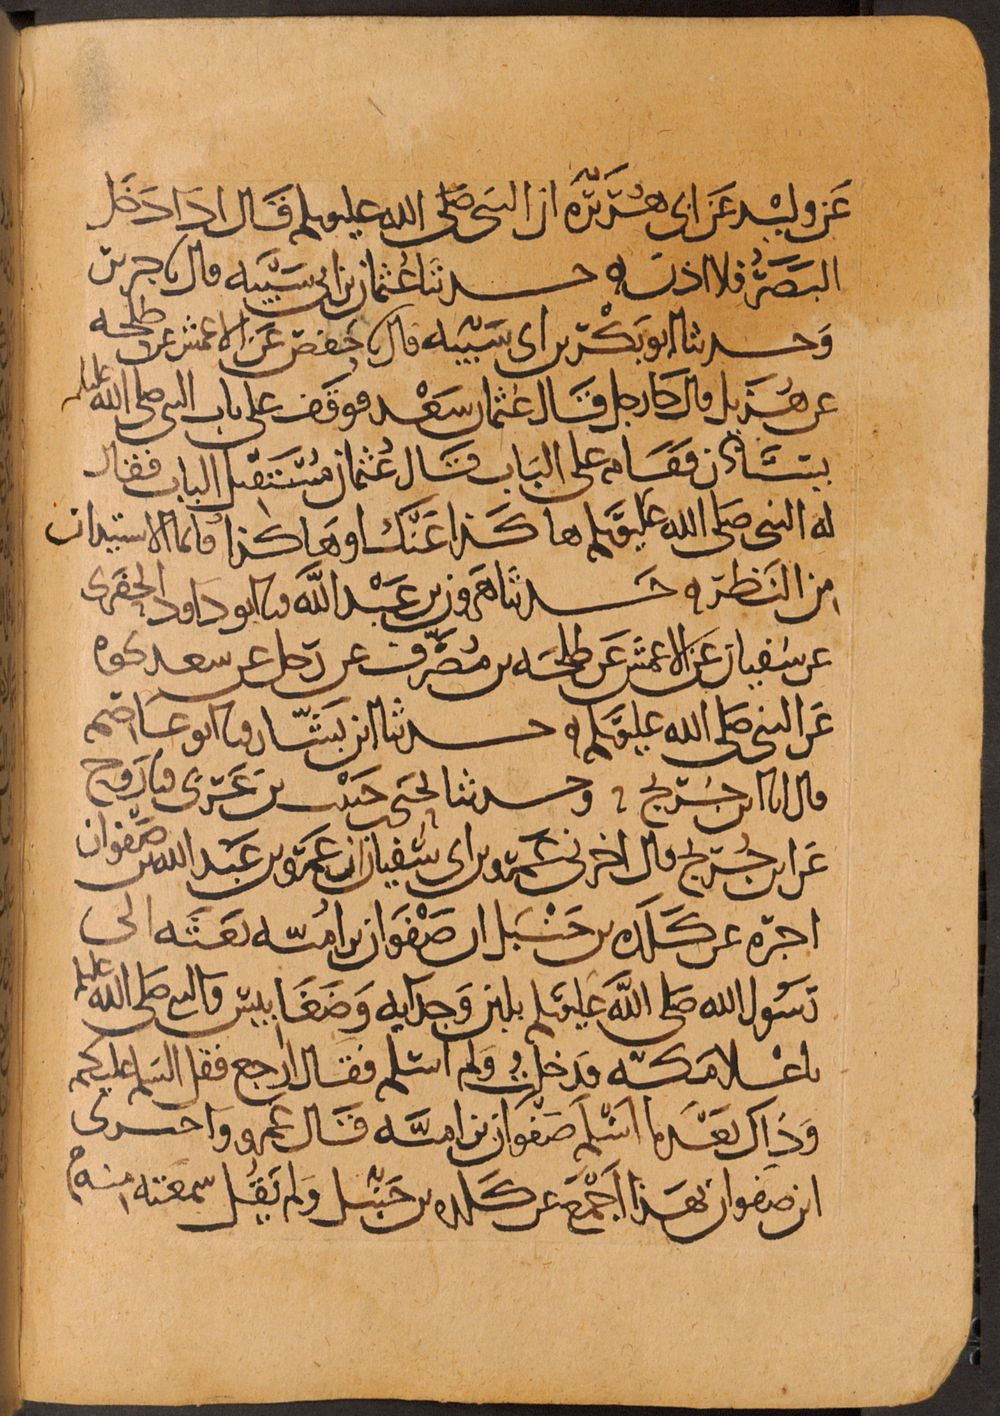 عن وليد عن ابي هريرة ان النبي صلى الله عليه وسلم قال اذا دخل
البصر فلا اذن ه حدثنا عثمان بن ابي شيبه قال نا جرير
وحدثنا ابو بكر بن ابي شيبه قال نا حفص عن الاعمش عن طلحه
عن هزيل قال جا رجل قال عثمان سعد فوقف على باب النبي صلى الله عليه
يستاذن فقام على الباب قال عثمان مستقبل الباب فقال
له النبي صلى الله عليه وسلم هاكذا عنك او هاكذا فانما الاستيذان
من النظر ه حدثنا هرون بن عبد الله نا ابو داود الحفري
عن سفيان عن الاعمش عن طلحه بن مصرف عن رجل عن سعد نحوه
عن النبي صلى الله عليه وسلم ه حدثنا ابن بشار نا ابو عاصم
قال انا ابن جريج ح وحدثنا يحيى بن حبيب بن عربي نا روح
عن ابن جريج قال اخبرني عمرو بن ابي سفيان ان عمرو بن عبد الله بن صفوان
اخبره عن كلده بن حنبل ان صفوان بن اميه بعثه الى
رسول الله صلى الله عليه وسلم بلبن وجدايه وضغابيس والنبي صلى الله عليه
باعلا مكه فدخلت ولم اسلم فقال ارجع فقل السلم عليكم
وذاك بعدما اسلم صفوان بن اميه قال عمرو واخبرني
ابن صفوان بهذا اجمع عن كلده بن حنبل ولم يقل سمعته منه